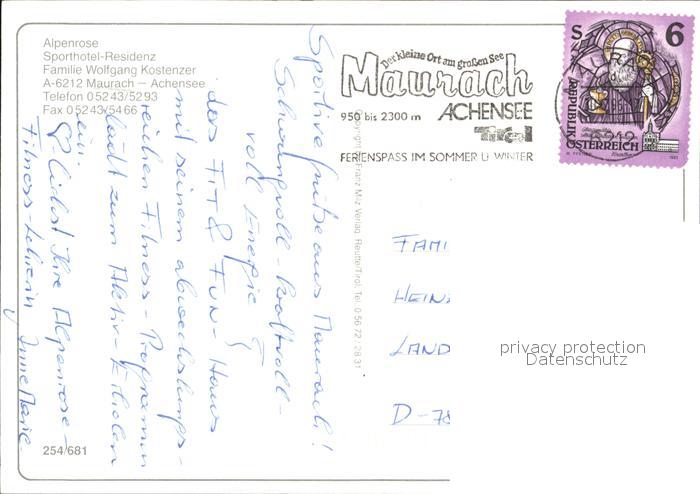 Alpenrose
Sporthotel-Residenz
Familie Wolfgang Kostenzer
A-6212 Maurach – Achensee
Telefon 0 52 43/52 93
Fax 0 52 43/54 66
Sportive Grüße aus Maurach!
Schwungvoll - kraftvoll -
voll Energie!
das FIT & FUN-Haus
mit seinem abwechslungs-
reichen Fitness-Programm
lädt zum Aktiv-Erholen
ein.
Ihre Alpenrose-
Fitness-Lehrerin Anne Marie
254/681
Der kleine Ort am großen See
Maurach
950 bis 2300 m ACHENSEE
Tirol
FERIENSPASS IM SOMMER U. WINTER
Franz Milz Verlag, Reutte/Tirol, Tel. 0 56 72 / 28 31
S 6
REPUBLIK
ÖSTERREICH
6212
FAMI
HEIN
LAND
D-78
privacy protection
Datenschutz